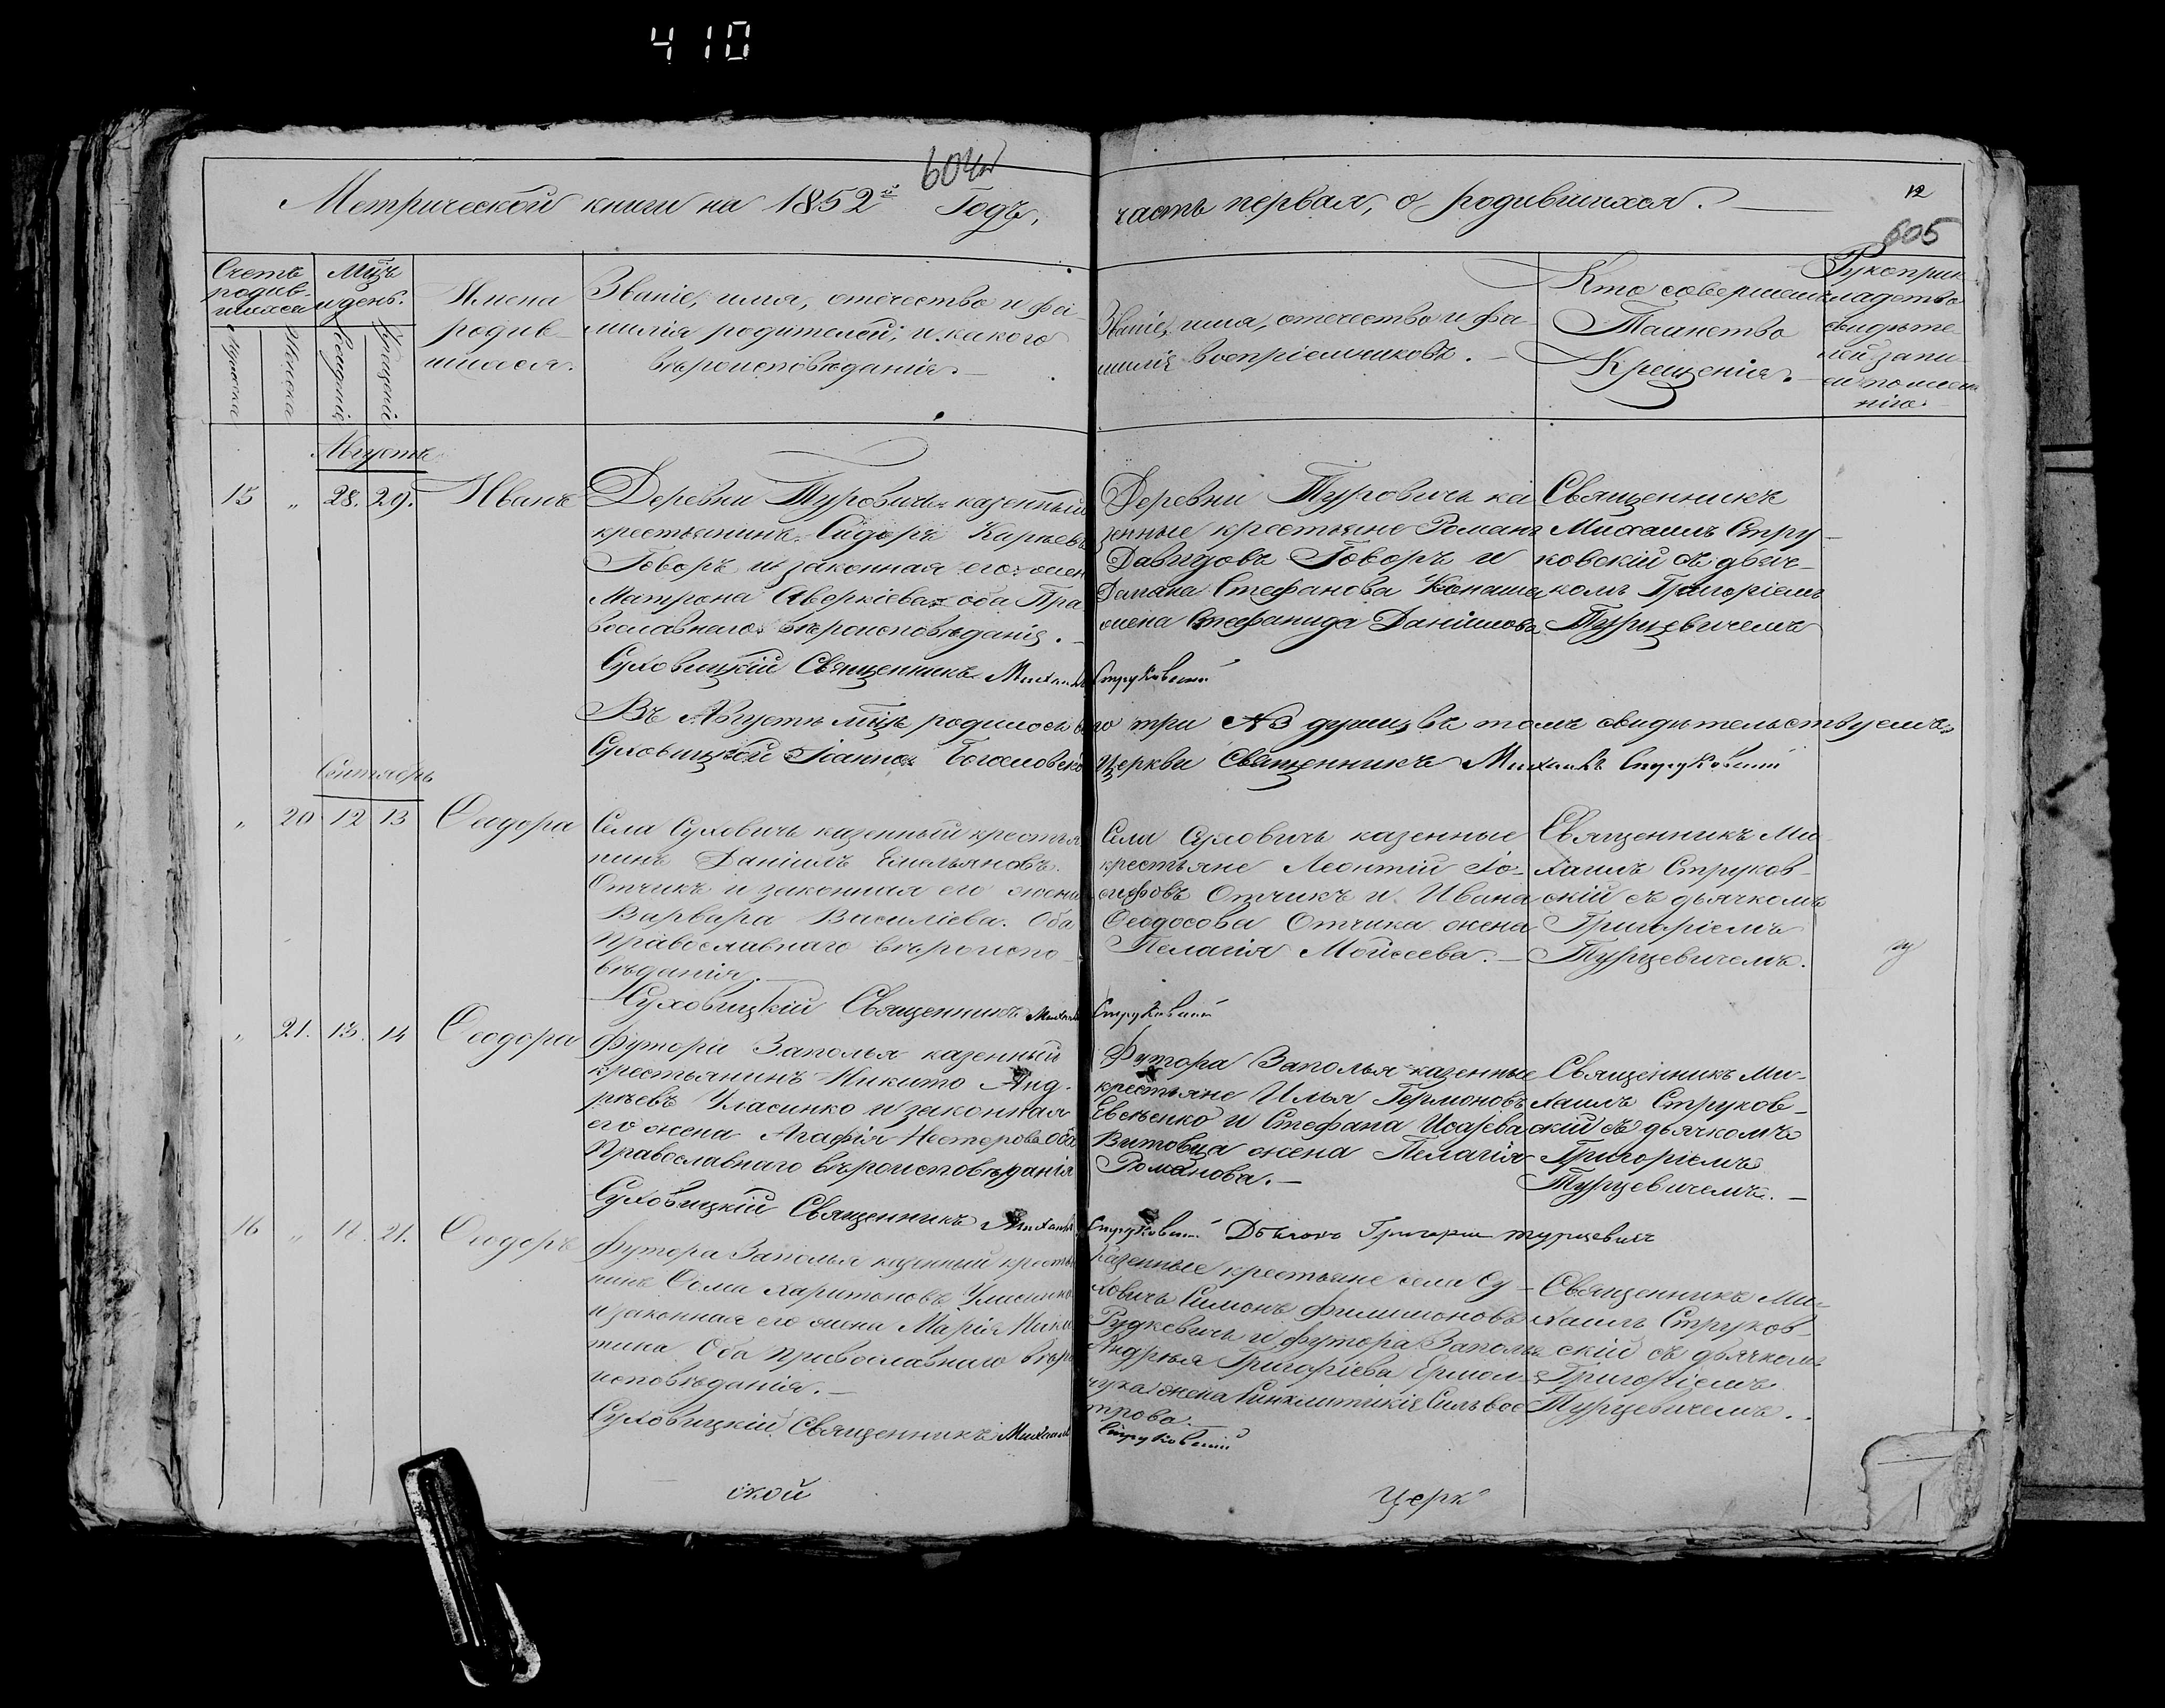 410
604
Метрической книги на 1852й Годъ,
часть первая, о родившихся.
12
605
Счетъ родив-шихся
Мцъ и день.
Мужеска
Женска
Рожденiя
Крещенiя
Имена
родив-
шихся.
Званiе, имя, отечество и фа-
милiя родителей, и какого
вѣроисповѣданiя.
Званiе, имя, отечество и фа-
милiя воспрiемниковъ.
Кто совершилъ
Таинство
Крещенiя.
Рукоприк
ладство
свидѣте
лей запи
си
Августъ
15 „ 28. 29. Иванъ
Деревни Туровичь казенный
крестьянинъ Сидоръ
Говоръ и законная его жена
Матрона Аверкiева оба Пра
вославнаго вѣроисповѣданiя.
Суховицкiй Священникъ Михаилъ Струковскiй
Деревни Туровичь ка
зенные крестьяне Романъ
Давыдовъ Говоръ и
Стефанова
жена Стефанида Данiилова
Священникъ
Михаилъ Стру-
ковскiй съ дьяч-
комъ Григорiемъ
Турцевичемъ
Въ Августѣ мцѣ родилось всего три № 3 души, въ томъ свидѣтельствуемъ
Суховицкой Iоанно Богословской Церкви Священникъ Михаилъ Струковскiй
Сентябрь
„ 20 12 13 Феодора
Села Суховичь казенный крестья
нинъ Данiилъ Емельяновъ
Отчикъ и законная его жена
Варвара Василiева. Оба
Православнаго вѣроиспо-
вѣданiя.
Суховицкiй Священникъ Михаилъ Струковскiй
Села Суховичь казенные
крестьяне Леонтiй Iо-
сифовъ Отчикъ и Ивана
Феодосова Отчика жена
Пелагiя Мойсеева.
Священникъ Ми
хаилъ Струков-
скiй съ дьячкомъ
Григорiемъ
Турцевичемъ.
„ 21. 13. 14 Феодора
Футора Заполья казенный
крестьянинъ Никита Анд-
рѣевъ Уласинко и законная
его жена Агафiя Нестерова оба
Православнаго вѣроисповѣданiя
Суховицкiй Священникъ Михаилъ Струковскiй Дьячокъ Григорiй Турцевичъ
Футора Заполья казенные
крестьяне Илья Гермоновъ
Евсѣенко и Стефана Исаева
Витовца жена Пелагiя
Романова.
Священникъ Ми-
хаилъ Струков-
скiй съ дьячкомъ
Григорiемъ
Турцевичемъ.
16 „ 18. 21. Феодоръ
Футора Заполья казенный крестья
нинъ Фома Харитоновъ Уласинко
и законная его жена Марiя Ники
тина Оба православнаго вѣро
исповѣданiя.
Суховицкiй Священникъ Михаилъ Струковскiй
Казенные крестьяне села Су-
ховичь Симонъ Филимоновъ
Рудкевичь и футора Заполья
Андрѣя Григорiева Ермол-
чука жена Синклитикiя Сильвес
трова.
Священникъ Ми-
хаилъ Струков-
скiй съ дьячкомъ
Григорiемъ
Турцевичемъ.
ской
Церк